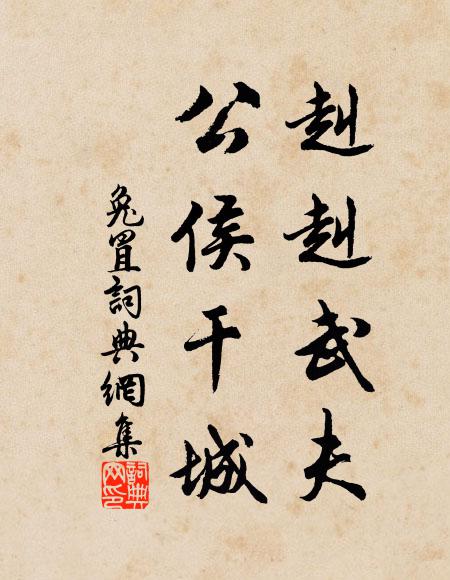 赳赳武夫
公侯干城
兔罝詞典網集
詞典網印